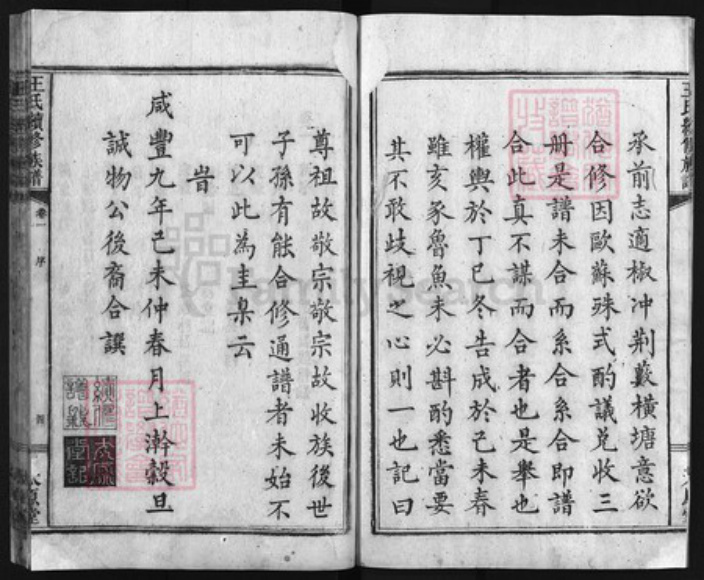 承前志適椒冲荆藪橫塘意欲
合修因歐蘇殊式酌議兑收三
册是譜未合而系合系合即譜
合此真不謀而合者也是舉也
權輿於丁巳冬告成於己未春
雖亥豕魯魚未必斟酌悉當要
其不敢歧視之心則一也記曰
尊祖故敬宗敬宗故收族後世
子孫有能合修通譜者未始不
可以此為圭臬云
旹
咸豐九年己未仲春月上澣穀旦
誠物公後裔合譔
王氏續修族譜
卷一
序
FamilySearch